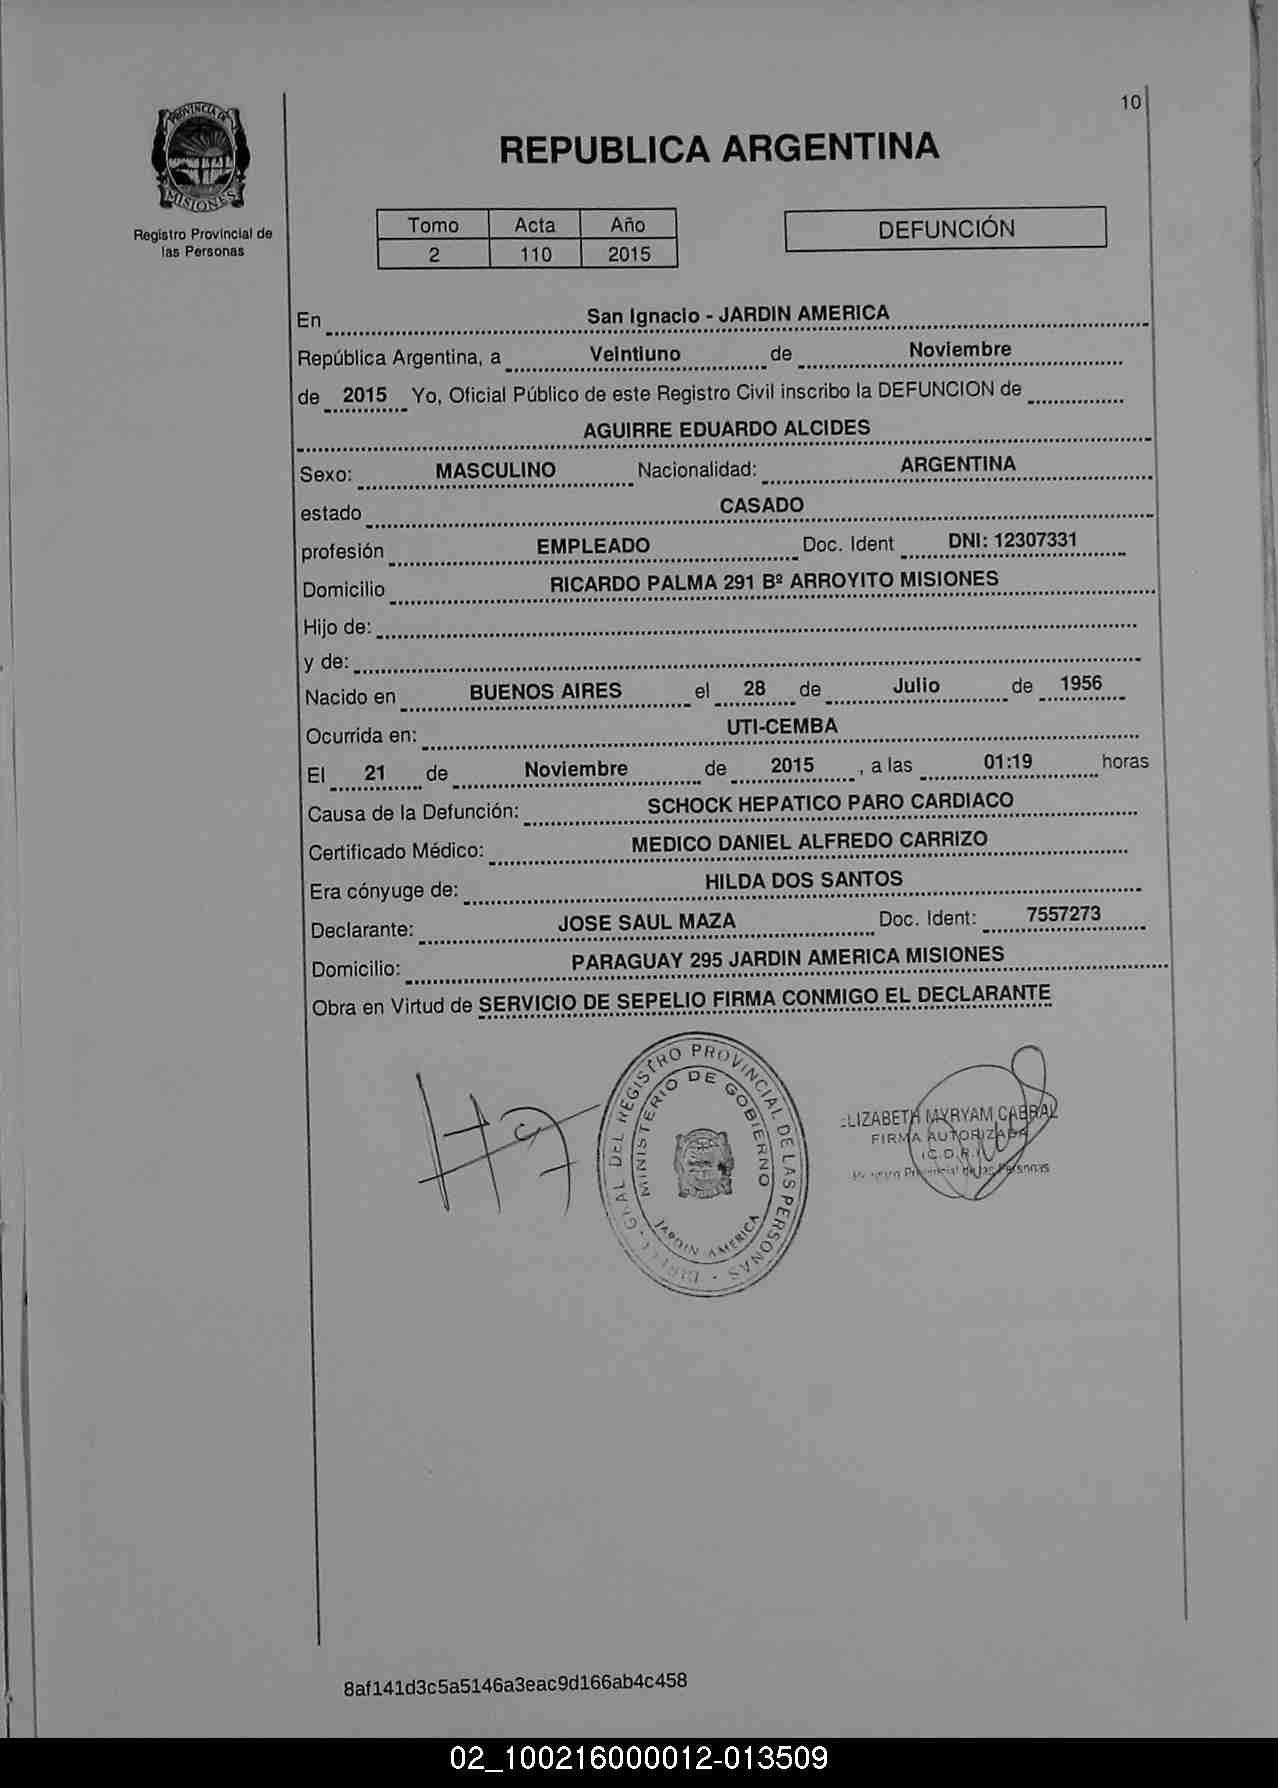 10
PROVINCIA DE
MISIONES
Registro Provincial de
las Personas
REPUBLICA ARGENTINA
Tomo Acta Año
2 110 2015
DEFUNCIÓN
En San Ignacio - JARDIN AMERICA
República Argentina, a Veintiuno de Noviembre
de 2015 Yo, Oficial Público de este Registro Civil inscribo la DEFUNCION de
AGUIRRE EDUARDO ALCIDES
Sexo: MASCULINO Nacionalidad: ARGENTINA
estado CASADO
profesión EMPLEADO Doc. Ident DNI: 12307331
Domicilio RICARDO PALMA 291 Bº ARROYITO MISIONES
Hijo de:
y de:
Nacido en BUENOS AIRES el 28 de Julio de 1956
Ocurrida en: UTI-CEMBA
El 21 de Noviembre de 2015 , a las 01:19 horas
Causa de la Defunción: SCHOCK HEPATICO PARO CARDIACO
Certificado Médico: MEDICO DANIEL ALFREDO CARRIZO
Era cónyuge de: HILDA DOS SANTOS
Declarante: JOSE SAUL MAZA Doc. Ident: 7557273
Domicilio: PARAGUAY 295 JARDIN AMERICA MISIONES
Obra en Virtud de SERVICIO DE SEPELIO FIRMA CONMIGO EL DECLARANTE
GRAL DEL REGISTRO PROVINCIAL DE LAS PERSONAS
MINISTERIO DE GOBIERNO
JARDIN AMERICA
ELIZABETH MYRYAM CABRAL
FIRMA AUTORIZADA
(C.D.R.)
Registro Provincial de las Personas
8af141d3c5a5146a3eac9d166ab4c458
02_100216000012-013509